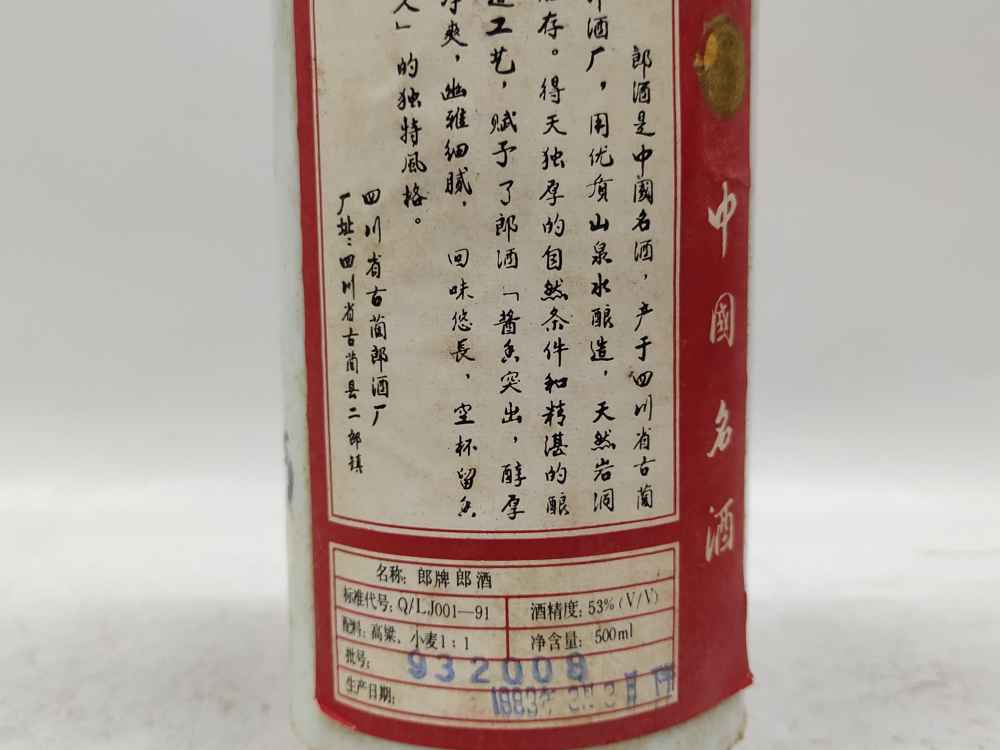 郎酒是中國名酒，产于四川省古蔺
酒厂，用优質山泉水酿造，天然岩洞
存。得天独厚的自然条件和精湛的酿
工艺，赋予了郎酒「酱香突出，醇厚
爽，幽雅细腻，回味悠長，空杯留香
」的独特風格。
四川省古蔺郎酒厂
厂址：四川省古蔺县二郎镇
中國名酒
名称：郎牌郎酒
标准代号：Q/LJ001—91
酒精度：53%(V/V)
配料：高粱，小麦1：1
净含量：500ml
批号：932008
生产日期：